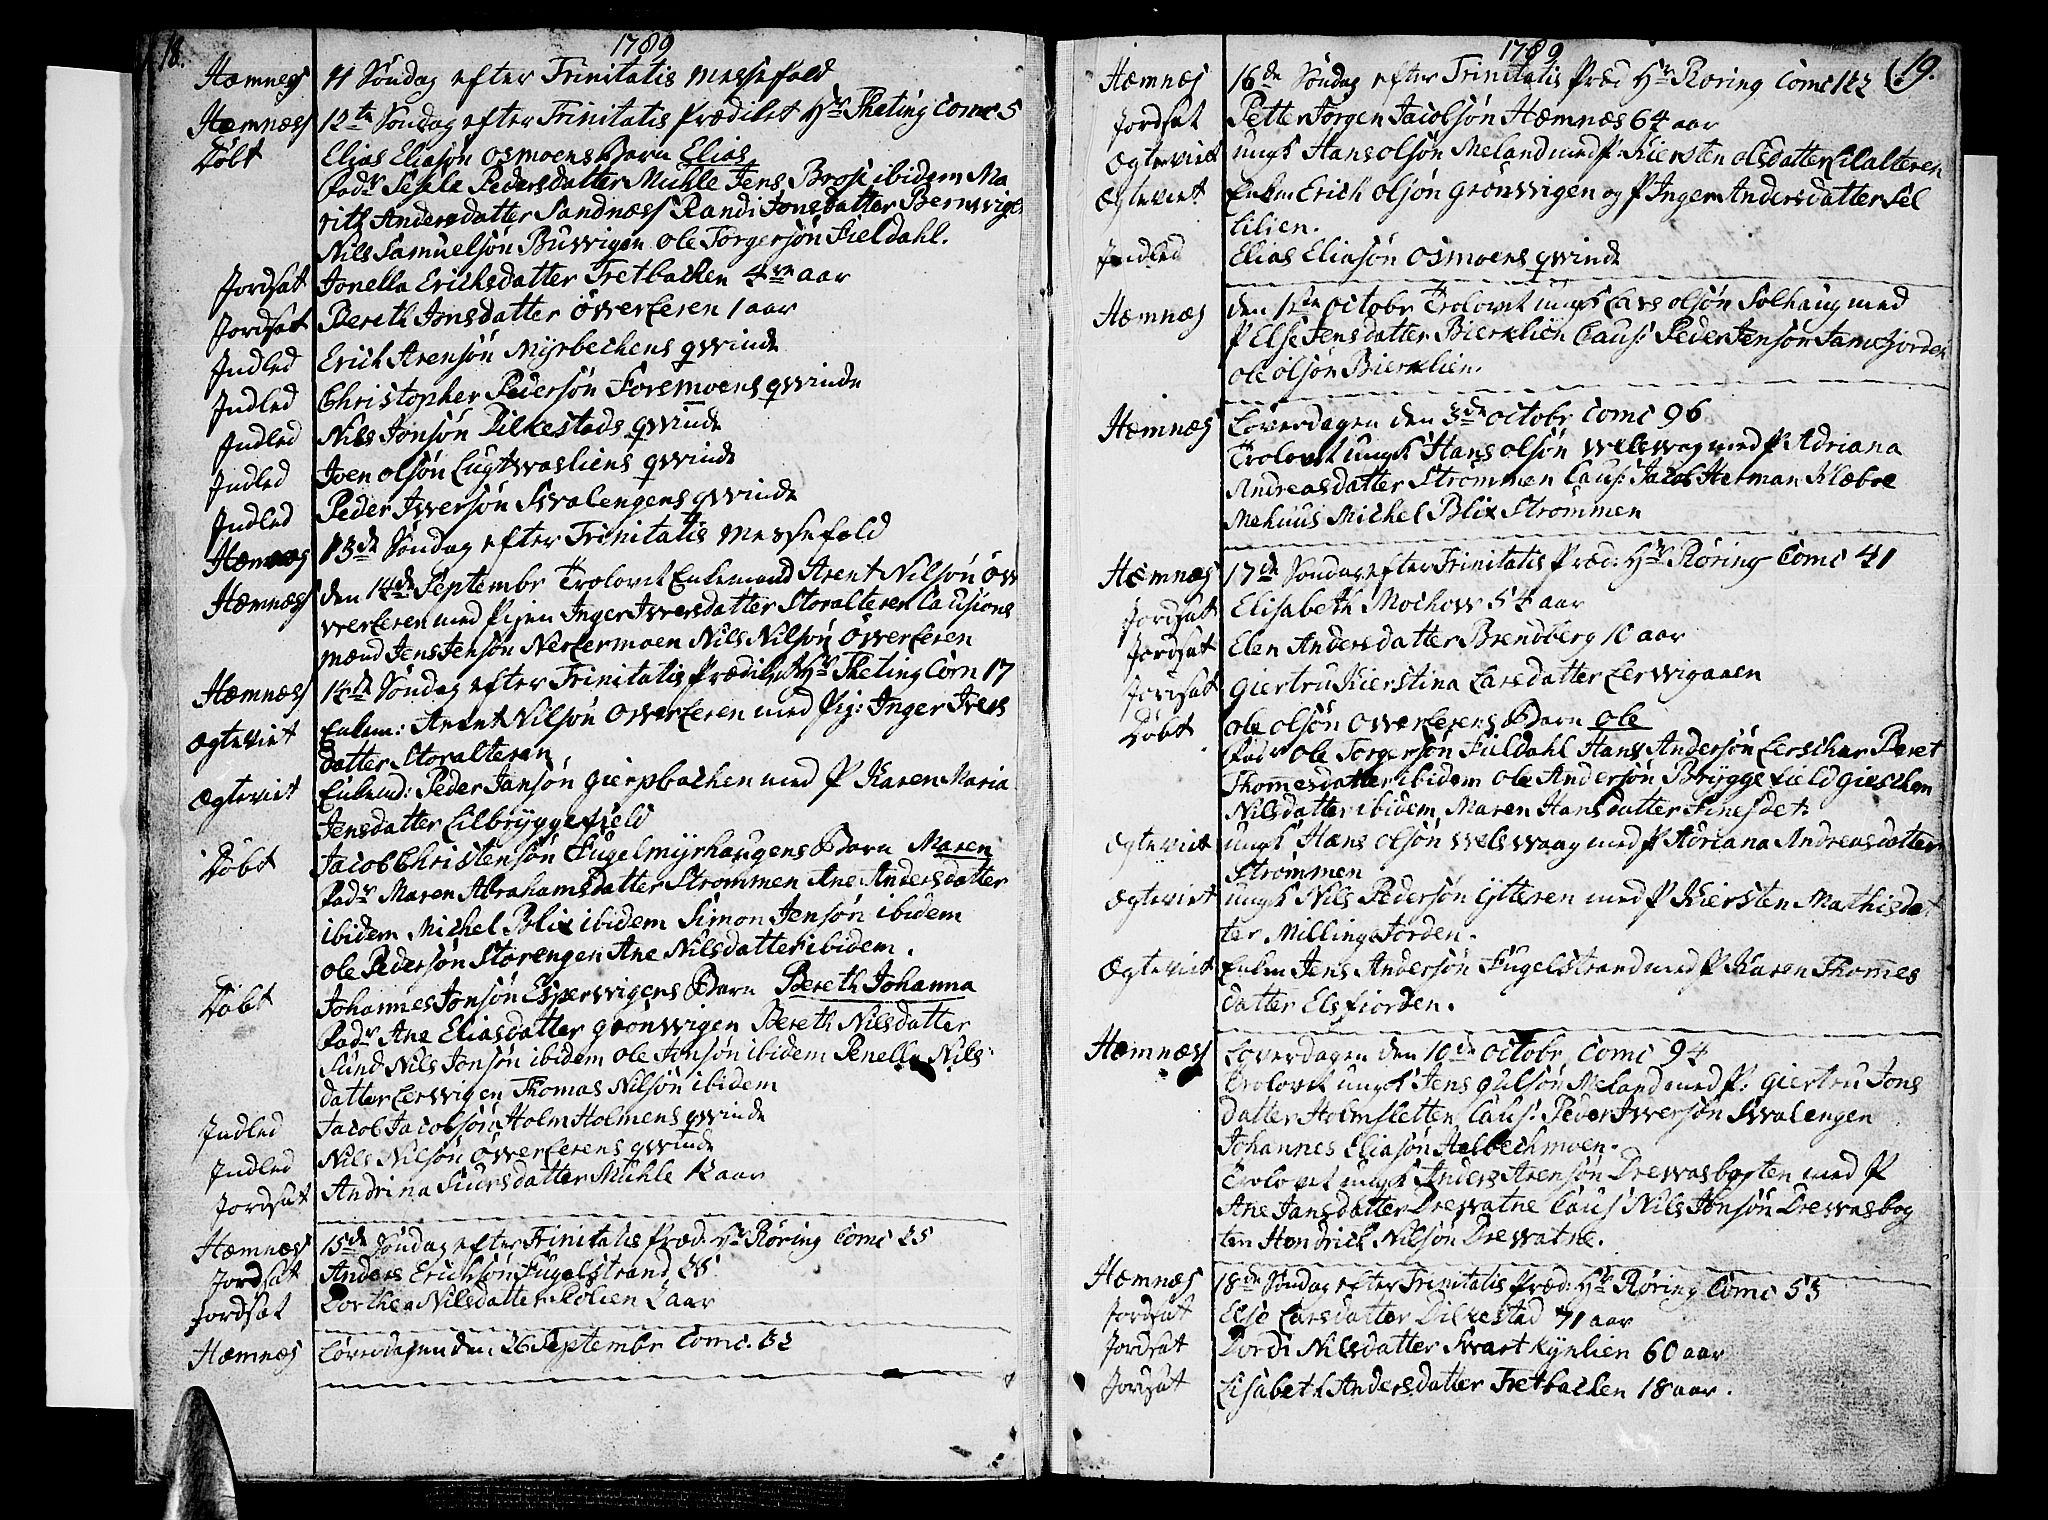 18.
1789
Hæmness 11 Søndag efter Trinitatis Messefald
Hæmness 12te Søndag efter Trinitatis Prædiket Hr Theting Comc 5
Døbt Elias Eliasøn Osmoens Barn Elias
Fadr Sesele Pedersdatter Mühle Jens Brose ibidem Ma
rith Andersdatter Sandness Randi Jonsdatter
Nils Samuelsøn Buwigen Ole Torgersøn Fieldahl.
Jordsat Jonella Erichsdatter Tretbacken aar
Jordsat Bereth Jonsdatter Øwerleren 1 aar
Indled Erich Arensøn Myrbechens qwinde
Indled Christopher Pedersøn Foremoens qwinde
Indled Nils Jonsøn Dilkestads qwinde
Indled Joen Olsøn Lugtwasliens qwinde
Indled Peder Iwersøn Swalengens qwinde
Hæmness 13de Søndag efter Trinitatis Messefald
Hæmness den 14de Septembr Trolovet Enkemand Arent Nilsøn Øw
werleren med Pigen Inger Iwersdatter Storalteren Causions
mænd Jens Jensøn Nerlermoen Nils Nilsøn Øwerleren
Hæmness 14de Søndag efter Trinitatis Prædiket Hr Theting Com 17
Ægteviet Enkem: Arent Nilsøn Owerleren med Pig: Inger Ivers
datter Storalteren
Ægteviet Enkmd: Peder Jansøn Gierpbachen med P Karen Maria
Jensdatter Lilbryggefield
Døbt Jacob Christensøn Fugelmyrhaugens Barn Maren
Fadr Maren Abrahamsdatter Strommen Ane Andersdatter
ibidem Michel Blix ibidem Simon Jensøn ibidem
Ole Pedersøn Storengen Ane Nilsdatter ibidem.
Døbt Johannes Jonsøn Esperwigens Barn Bereth Johanna
Fadr Ane Eliasdatter Grønwigen Bereth Nilsdatter
Sund Nils Jonsøn ibidem Ole Jonsøn ibidem Penella Nils
datter Lerwigen Thomas Nilsøn ibidem
Indled Jacob Jacobsøn Holm Holmens qwinde
Indled Nils Nilsøn Øwerlerens qwinde
Jordsat Andrina Siursdatter Mühle 12 aar
Hæmness 15de Søndag efter Trinitatis Præd: Hr Røring Comc 25
Jordsat Anders Erichsøn Fugelstrand 38
Jordsat Dorthea Nilsdatter Rølien 2 aar
Hæmness Løverdagen den 26 Septembr Comc. 32
19.
1789
Hæmnæs 16de Søndag efter Trinitatis Præd Hr Røring Comc 122
Jordsat Petter Jørgen Jacobsøn Hæmnæs 64 aar
Ægteviet ungk Hans Olsøn Meland med P Kiersten Olsdatter Lilalteren
Ægteviet Enkm Erich Olsøn Grønwigen og P Inger Andersdatter Sel
lilien.
Indled Elias Eliasøn Osmoens qwinde
Hæmnæs den 1ste Octobr Trolovet ungk Lars Olsøn Solhaug med
P Else Jensdatter Bierklien Caus: Peder Jensøn Tamefjorden
Ole Olsøn Bierklien.
Hæmnæs Løverdagen den 3de Octobr Comc 96
Trolovet ungk Hans Olsøn Welswag med P Adriana
Andreasdatter Strømmen Caus: Jacob Herman Klæboe
Mehuus Michel Blix Strømmen
Hæmnæs 17de Søndag efter Trinitatis Præd: Hr Røring Comc 41
Jordsat Elisabeth Mochow 54 aar
Jordsat Elen Andersdatter Brendberg 10 aar
Jordsat Giertru Kierstina Larsdatter Lerwigaaen
Døbt Ole Olsøn Owerlerens Barn Ole
Fadr Ole Torgersøn Fieldahl Hans Andersøn Lerschar Beret
Thomesdatter ibidem Ole Andersøn Bryggefield Gieschen
Nilsdatter ibidem Maren Hansdatter Finesdet:
Ægteviet ungk Hans Olsøn Welswaag med P Adriana Andreasdatter
Strømmen
Ægteviet ungk Nils Pedersøn Ytteren med P Kiersten Mathisdat
ter Millingsforden.
Ægteviet Enkm Jens Andersøn Fugelstrand med P Karen Thomes
datter Elsfiorden.
Hæmnæs Løverdagen den 10de Octobr Comc 94
Trolovet ungk Jens Gulsøn Meland med P: Giertru Jons
datter Holmsletten Caus: Peder Iwersøn Swalengen
Johannes Eliasøn Halbechmoen.
Trolovet ungk Anders Arensøn Drewasbogten med P
Ane Jansdatter Drewatne Caus Nils Jonsøn Drewasbog
ten Hendrich Nilsøn Drewatne.
Hæmnæs 18de Søndag efter Trinitatis Præd: Hr Røring Comc 53
Jordsat Else Larsdatter Dilkestad 71 aar
Jordsat Dordi Nilsdatter Swartkynlien 60 aar
Jordsat Lisabeth Andersdatter Tretbacken 18 aar.